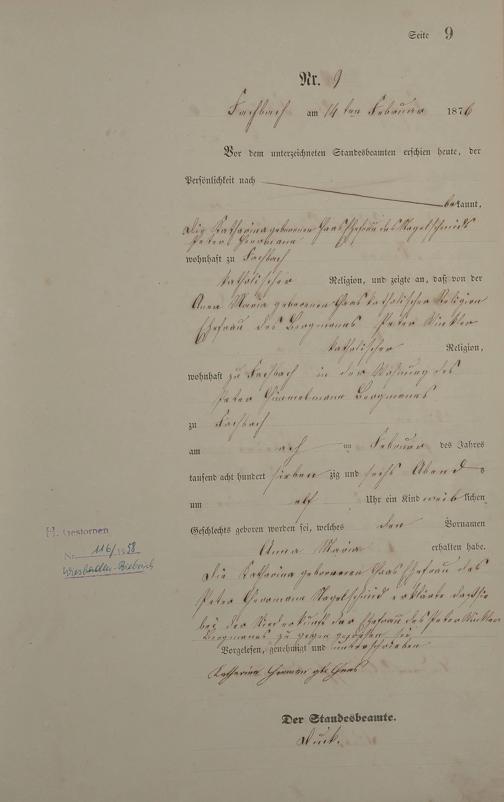 Seite 9
Nr. 9
Fachbach am 14ten Februar 1876
Vor dem unterzeichneten Standesbeamten erschien heute, der
Persönlichkeit nach
bekannt,
die Katharina geborenen Haas Ehefrau des Nagelschmieds
Peter Herrmann
wohnhaft zu Fachbach
katholischer Religion, und zeigte an, daß von der
Anna Maria geborenen Haas katholischer Religion
Ehefrau des Bergmannes Peter Winkler
katholischer Religion,
wohnhaft zu Fachbach in der Wohnung des
Peter Bergmannes
zu Fachbach
am acht en Februar des Jahres
tausend acht hundert sieben zig und sechs Abend s
um elf Uhr ein Kind weib lichen
Geschlechts geboren worden sei, welches den Vornamen
Anna Maria erhalten habe.
Die Katharina geborenen Haas Ehefrau des
Peter Herrmann Nagelschmied erklärte daß sie
bei der Niederkunft der Ehefrau des Peter Winkler
Bergmannes zu gegen gewesen sei
Vorgelesen, genehmigt und unterschrieben
Katharina Herman gb Haas
Der Standesbeamte.
H. Gestorben
Nr. 116/1958
Wiesbaden-Biebrich